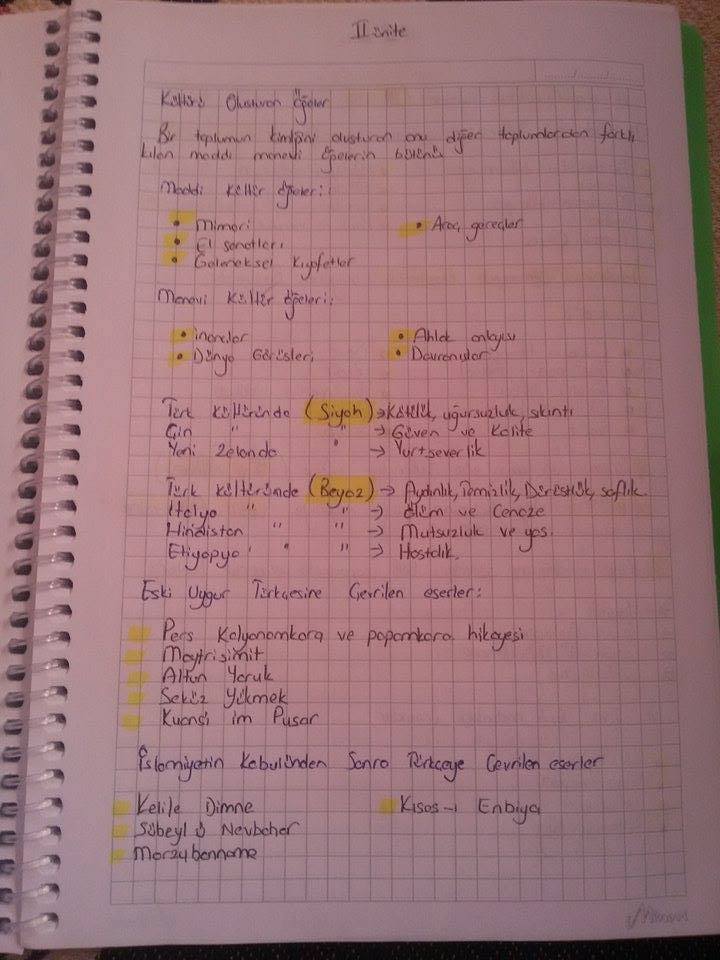 II ünite
Kültürü Oluşturan Öğeler
Bir toplumun kimliğini oluşturan onu diğer toplumlardan farklı
kılan maddi manevi öğelerin bütünü
Maddi Kültür öğeleri:
• Mimari
• Araç gereçler
• El sanatları
• Geleneksel Kıyafetler
Manevi Kültür öğeleri:
• inançlar
• Ahlak anlayışı
• Dünya Görüşleri
• Davranışlar
Türk Kültüründe (Siyah) → Kötülük, uğursuzluk, sıkıntı
Çin " " → Güven ve Kalite
Yeni Zelanda " → Yurtseverlik
Türk kültüründe (Beyaz) → Aydınlık, Temizlik, Dürüstlük, saflık.
İtalya " " → ölüm ve Cenaze
Hindistan " " → Mutsuzluk ve yas.
Etiyopya " " → Hastalık.
Eski Uygur Türkçesine Çevrilen eserler:
Pers Kalyanamkara ve papamkara hikayesi
Maytrisimit
Altun Yaruk
Sekiz Yükmek
Kuanşi im Pusar
İslamiyetin Kabulünden Sonra Türkçeye Çevrilen eserler
Kelile Dimne
Kısas-ı Enbiya
Süheyl ü Nevbahar
Marzubanname